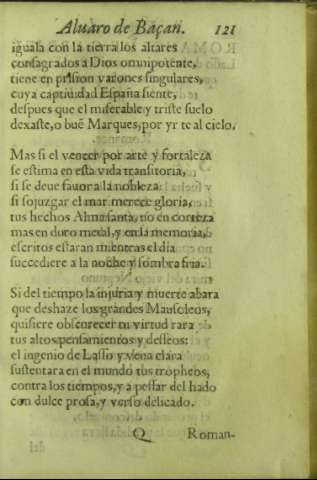 Aluaro de Baçan. 121
iguala con la tierra los altares
consagrados a Dios omnipotente,
tiene en prision varones singulares,
cuya captiuidad España siente,
despues que el miserable y triste suelo
dexaste, o buẽ Marques, por yr te al cielo.
Mas si el vencer por arte y fortaleza
se estima en esta vida transitoria,
si se deue fauor a la nobleza:
si sojuzgar el mar merece gloria,
tus hechos Alma santa, no en corteza
mas en duro metal, y en la memoria,
escritos estaran mientras el dia
succediere a la noche y sombra fria.
Si del tiempo la injuria y muerte auara
que deshaze los grandes Mausoleos,
quisiere obscurecer tu virtud rara
tus altos pensamientos y desseos:
el ingenio de Lasso y vena clara
sustentara en el mundo tus tropheos,
contra los tiempos, y a pesar del hado
con dulce prosa, y verso delicado.
Q Roman-